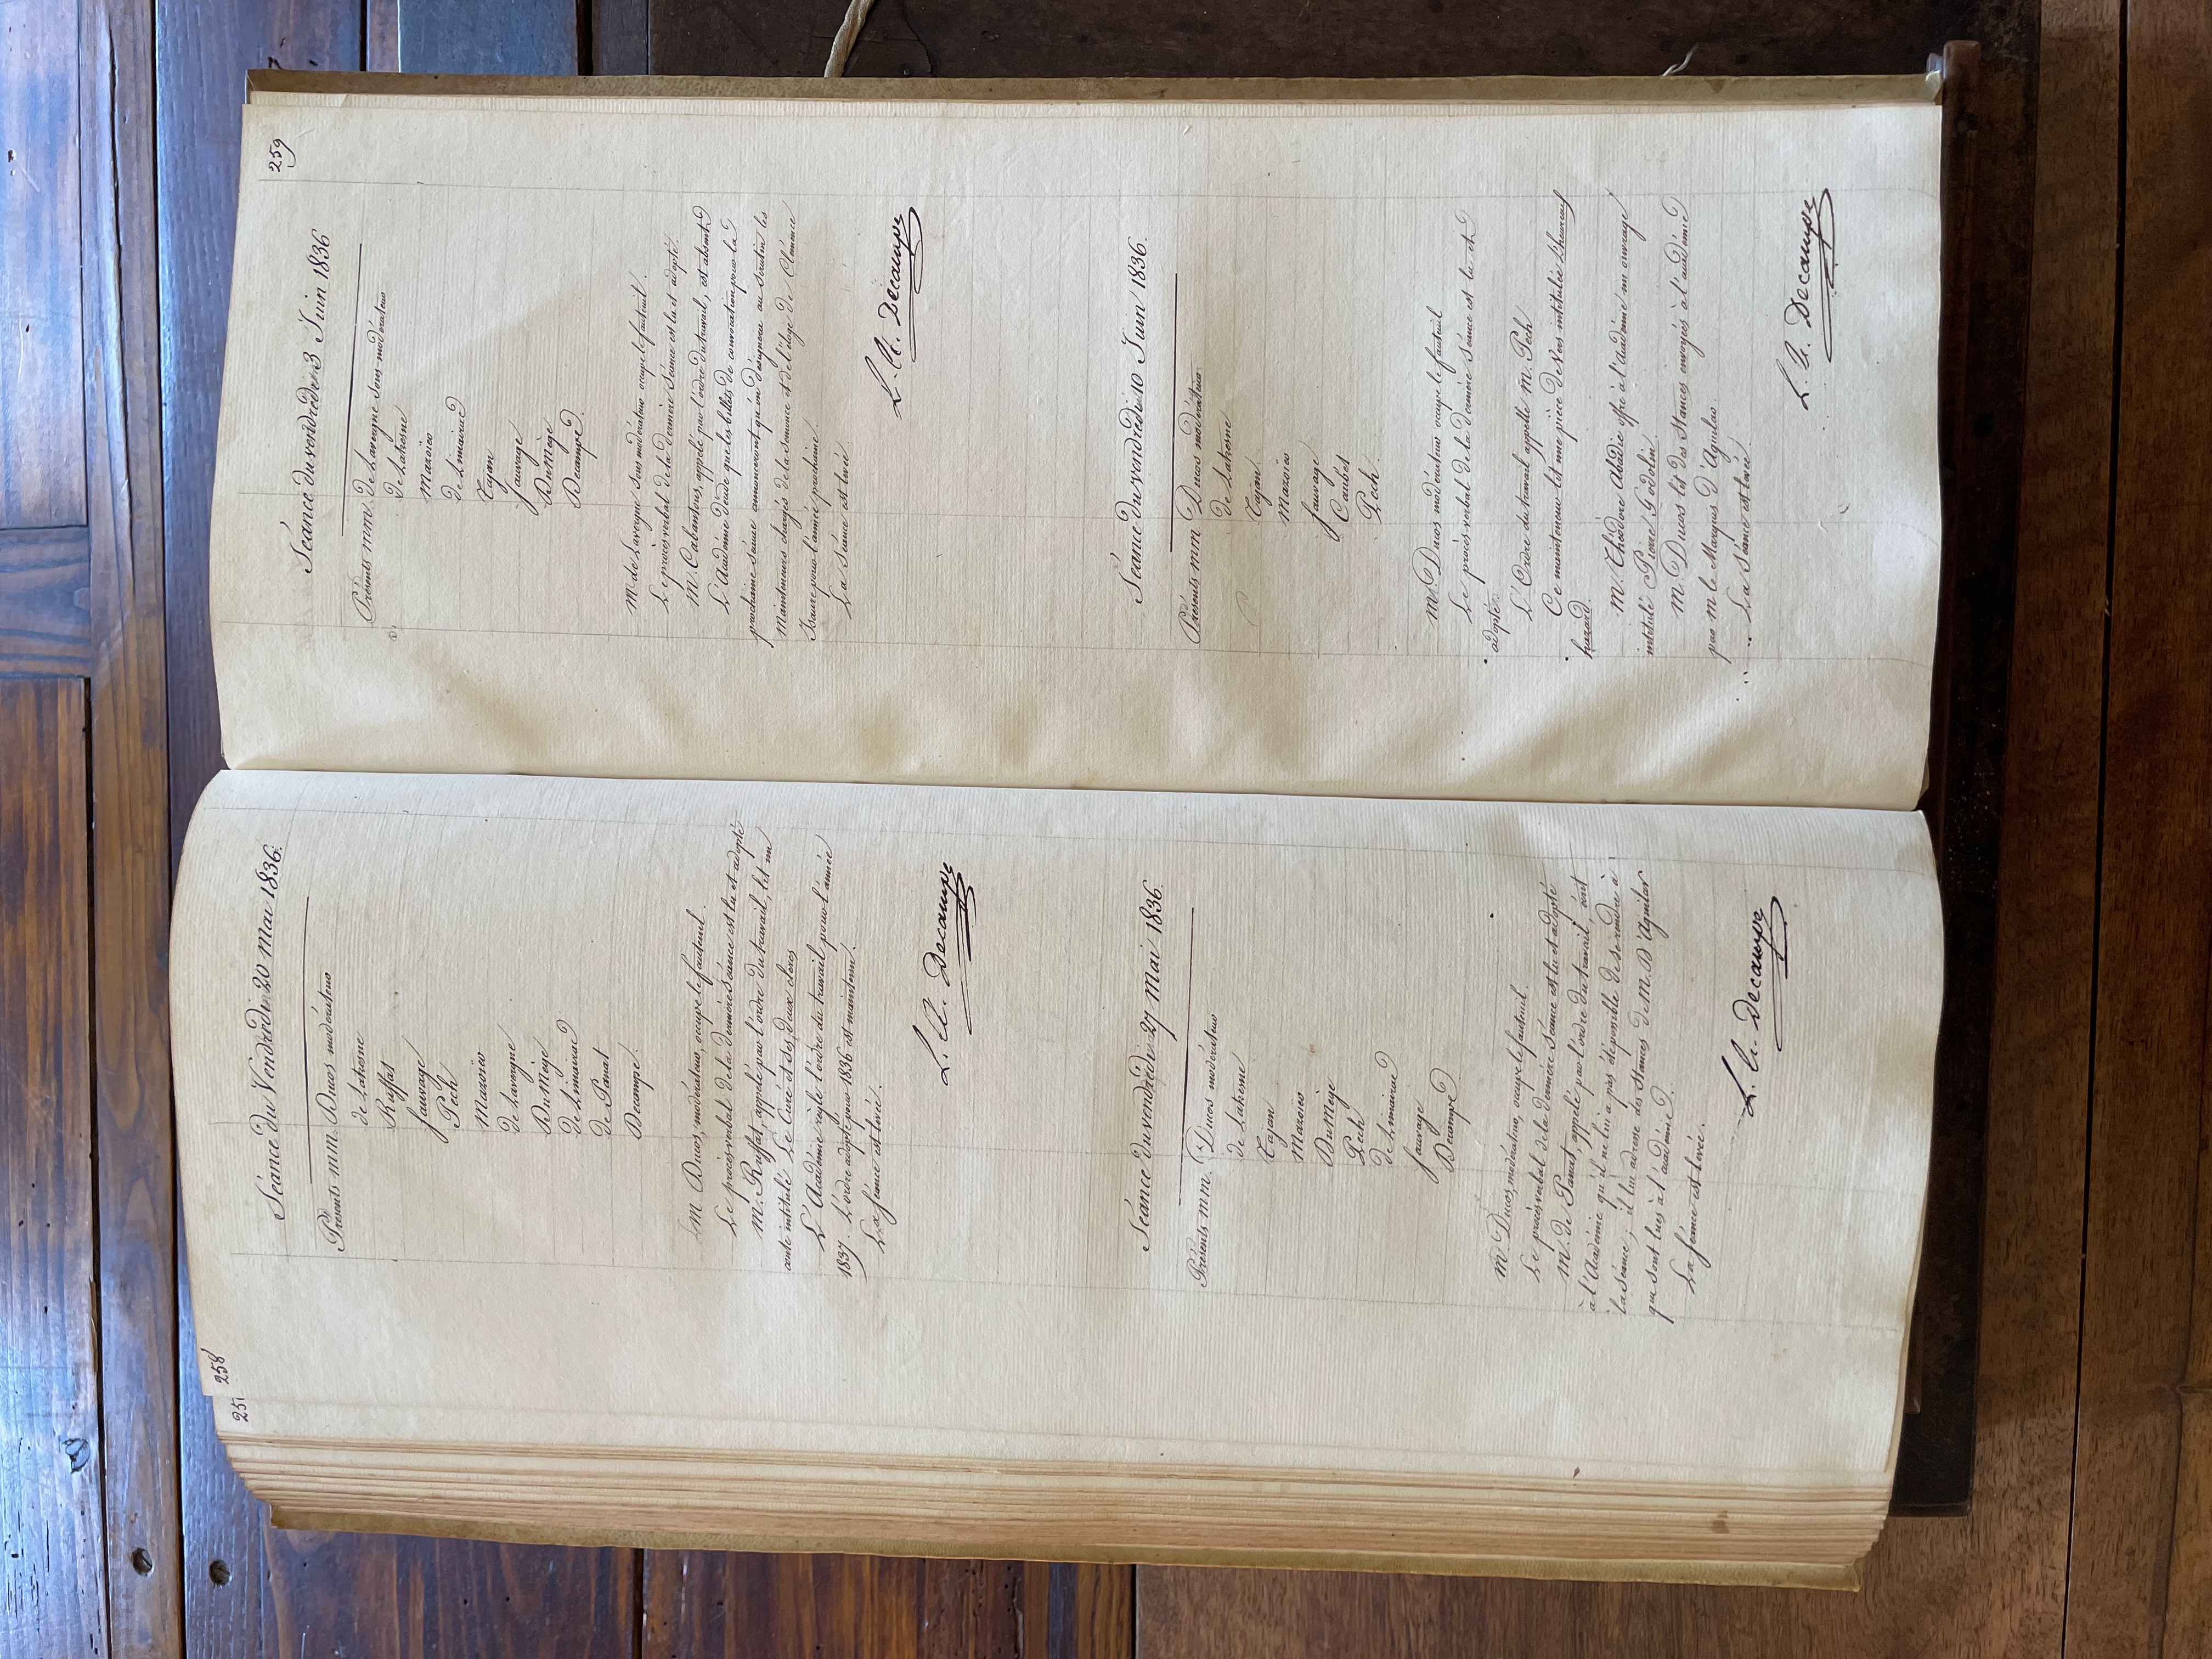 251
258
Séance du Vendredi 20 Mai 1836.
Présents mm. Ducos modérateur
de Lahesne
Ruffat
Sauvage
Pech
Mazoïer
de Lavergne
Du Mège
de Limairac
de Panat
Decampe.
M Ducos, modérateur, occupe le fauteuil.
Le procès verbal de la dernière Séance est lu et adopté
M. Ruffat, appelé par l'ordre du travail, lit un
conte intitulé Le Curé et ses deux clercs
L'Académie règle l'ordre du travail pour l'année
1837. L'ordre adopté pour 1836 est maintenu.
La séance est levée.
L. A. Decampe
Séance du vendredi 27 Mai 1836.
Présents mm. Ducos modérateur
de Lahesne
Tajan
Mazoïer
Du Mège
Pech
de Limairac
Sauvage
Decampe
M Ducos, modérateur, occupe le fauteuil.
Le procès verbal de la dernière Séance est lu et adopté
M. de Panat, appelé par l'ordre du travail, écrit
à l'Académie qu'il ne lui a pas été possible de se rendre à
la séance; il lui adresse des Stances de M. D'Aguilar
qui sont lues à l'académie.
La séance est levée.
L. A. Decampe
259
Séance du vendredi 3 Juin 1836
Présents mm. de Lavergne Sous-modérateur
de Lahesne
Mazoïer
de Limairac
Tajan
Sauvage
Du Mège
Decampe.
M de Lavergne sous modérateur occupe le fauteuil.
Le procès verbal de la dernière Séance est lu et adopté.
M. Cabantous, appelé par l'ordre du travail, est absent
L'Académie décide que les billets de convocation pour la
prochaine séance annonceront qu'on désignera au scrutin les
Mainteneurs chargés de la semonce et de l'éloge de Clémence
Isaure pour l'année prochaine.
La Séance est levée.
L. A. Decampe
Séance du vendredi 10 Juin 1836.
Présents mm Ducos modérateur.
de Lahesne
Tajan
Mazoïer
Sauvage
Caubet
Pech.
M. Ducos modérateur occupe le fauteuil
Le procès verbal de la dernière Séance est lu et
adopté.
L'Ordre du travail appelle M. Pech
Ce mainteneur lit une pièce de Vers intitulée L'heureux
hazard.
M. Théodore Abadie offre à l'Académie un ouvrage
intitulé Pierre Godolin.
M. Ducos lit des Stances envoyées à l'académie
par M le Marquis d'Aguilar.
La séance est levée.
L. A. Decampe